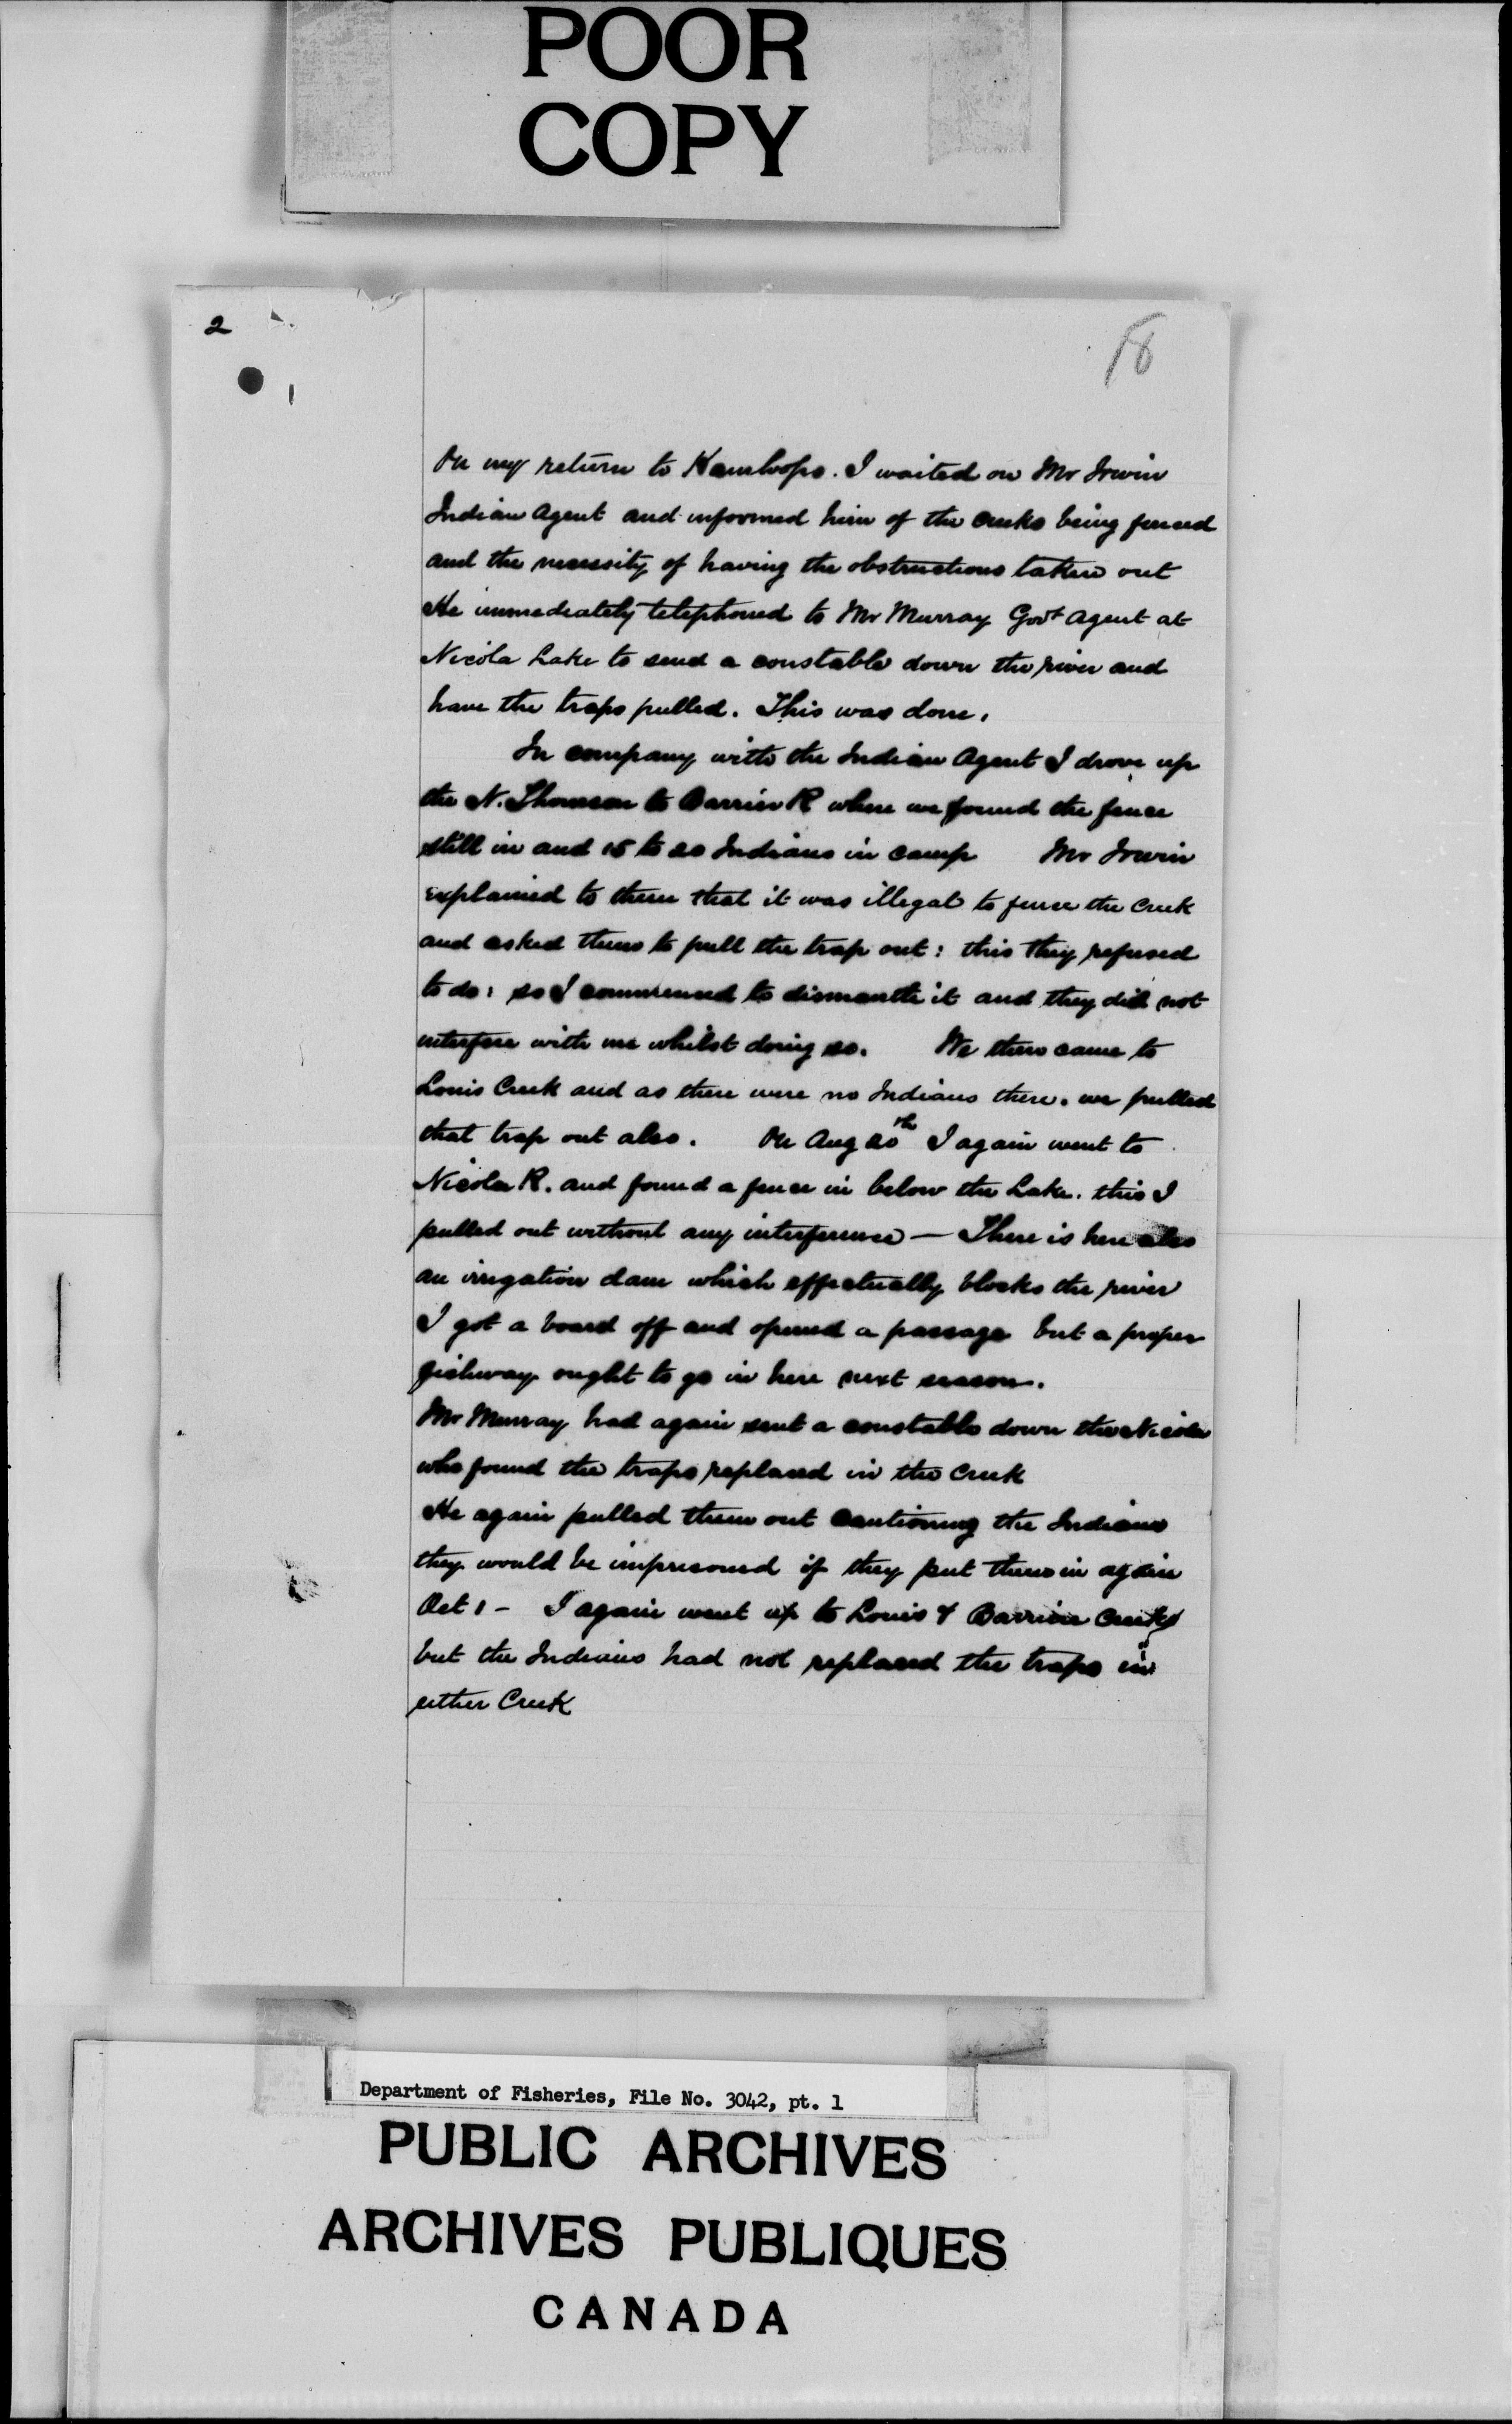 POOR
COPY
2
18
On my return to Kamloops. I waited on Mr Irwin
Indian Agent and informed him of the creeks being fenced
and the necessity of having the obstructions taken out
He immediately telephoned to Mr Murray Govt Agent at
Nicola Lake to send a constable down the river and
have the traps pulled. This was done.
In company with the Indian Agent I drove up
the N. Thomson to Barrier R where we found the fence
still in and 15 to 20 Indians in camp Mr Irwin
explained to them that it was illegal to fence the Creek
and asked them to pull the trap out: this they refused
to do: so I commenced to dismantle it and they did not
interfere with me whilst doing so. We then came to
Louis Creek and as there were no Indians there. we pulled
that trap out also. On Aug 20th I again went to
Nicola R. and found a fence in below the Lake. this I
pulled out without any interference — There is here also
an irrigation dam which effectually blocks the river
I got a board off and opened a passage but a proper
fishway ought to go in here next season.
Mr Murray had again sent a constable down the Nicola
who found the traps replaced in the Creek
He again pulled them out cautioning the Indians
they would be imprisoned if they put them in again
Oct 1 - I again went up to Louis & Barrier Creeks
but the Indians had not replaced the traps in
either Creek
Department of Fisheries, File No. 3042, pt. 1
PUBLIC ARCHIVES
ARCHIVES PUBLIQUES
CANADA